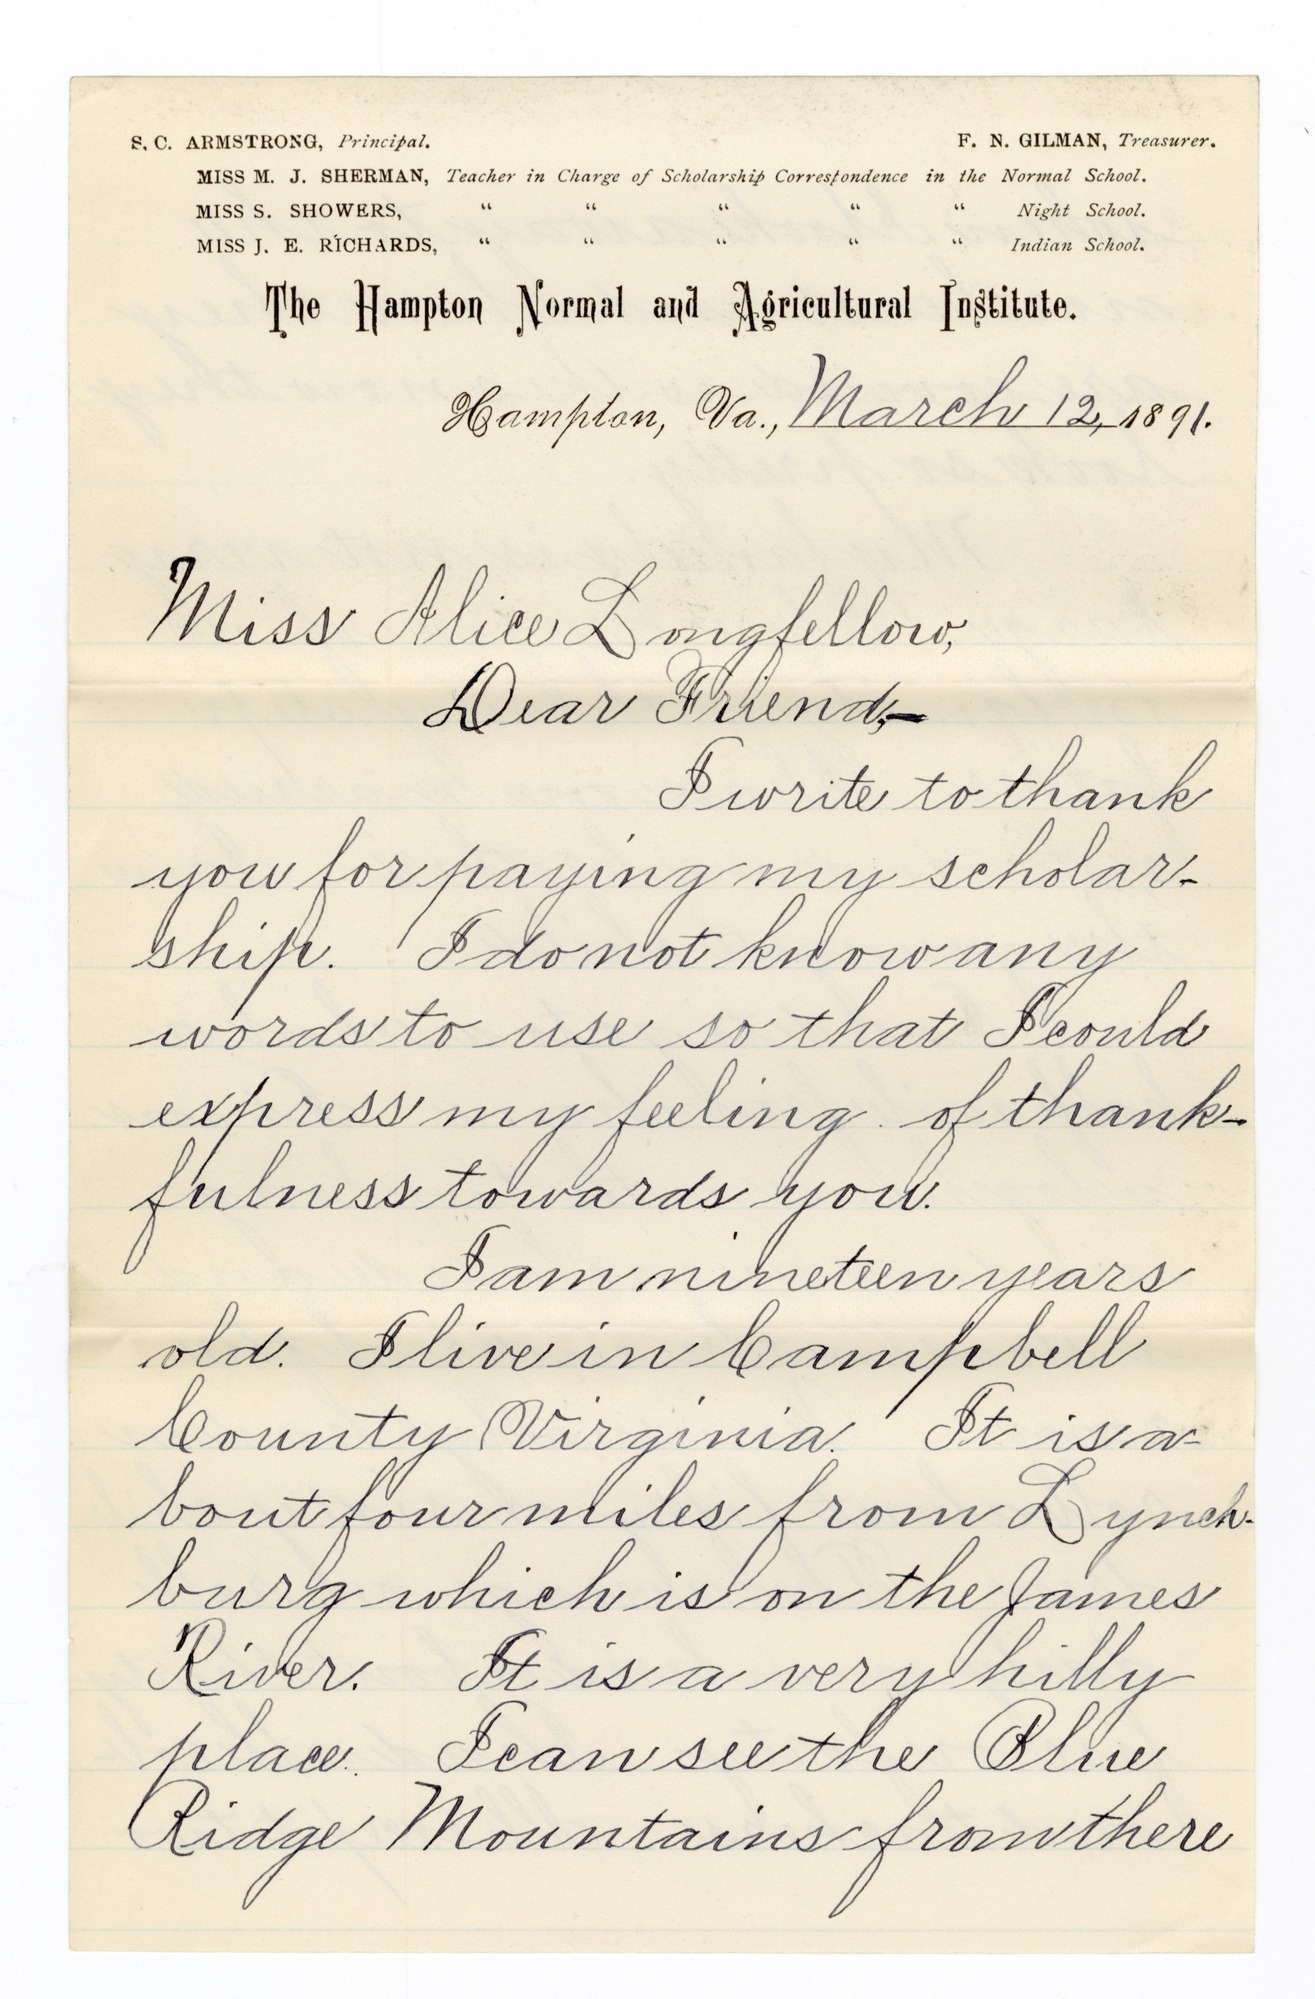 S. C. ARMSTRONG, Principal. F. N. GILMAN, Treasurer.
MISS M. J. SHERMAN, Teacher in Charge of Scholarship Correspondence in the Normal School.
MISS S. SHOWERS, " " " " " Night School.
MISS J. E. RICHARDS, " " " " " Indian School.
The Hampton Normal and Agricultural Institute.
Hampton, Va., March 12, 1891.
Miss Alice Longfellow,
Dear Friend,—
I write to thank
you for paying my scholar-
ship. I do not know any
words to use so that I could
express my feeling of thank-
fulness towards you.
I am nineteen years
old. I live in Campbell
County Virginia. It is a-
bout four miles from Lynch-
burg which is on the James
River. It is a very hilly
place. I can see the Blue
Ridge Mountains from there